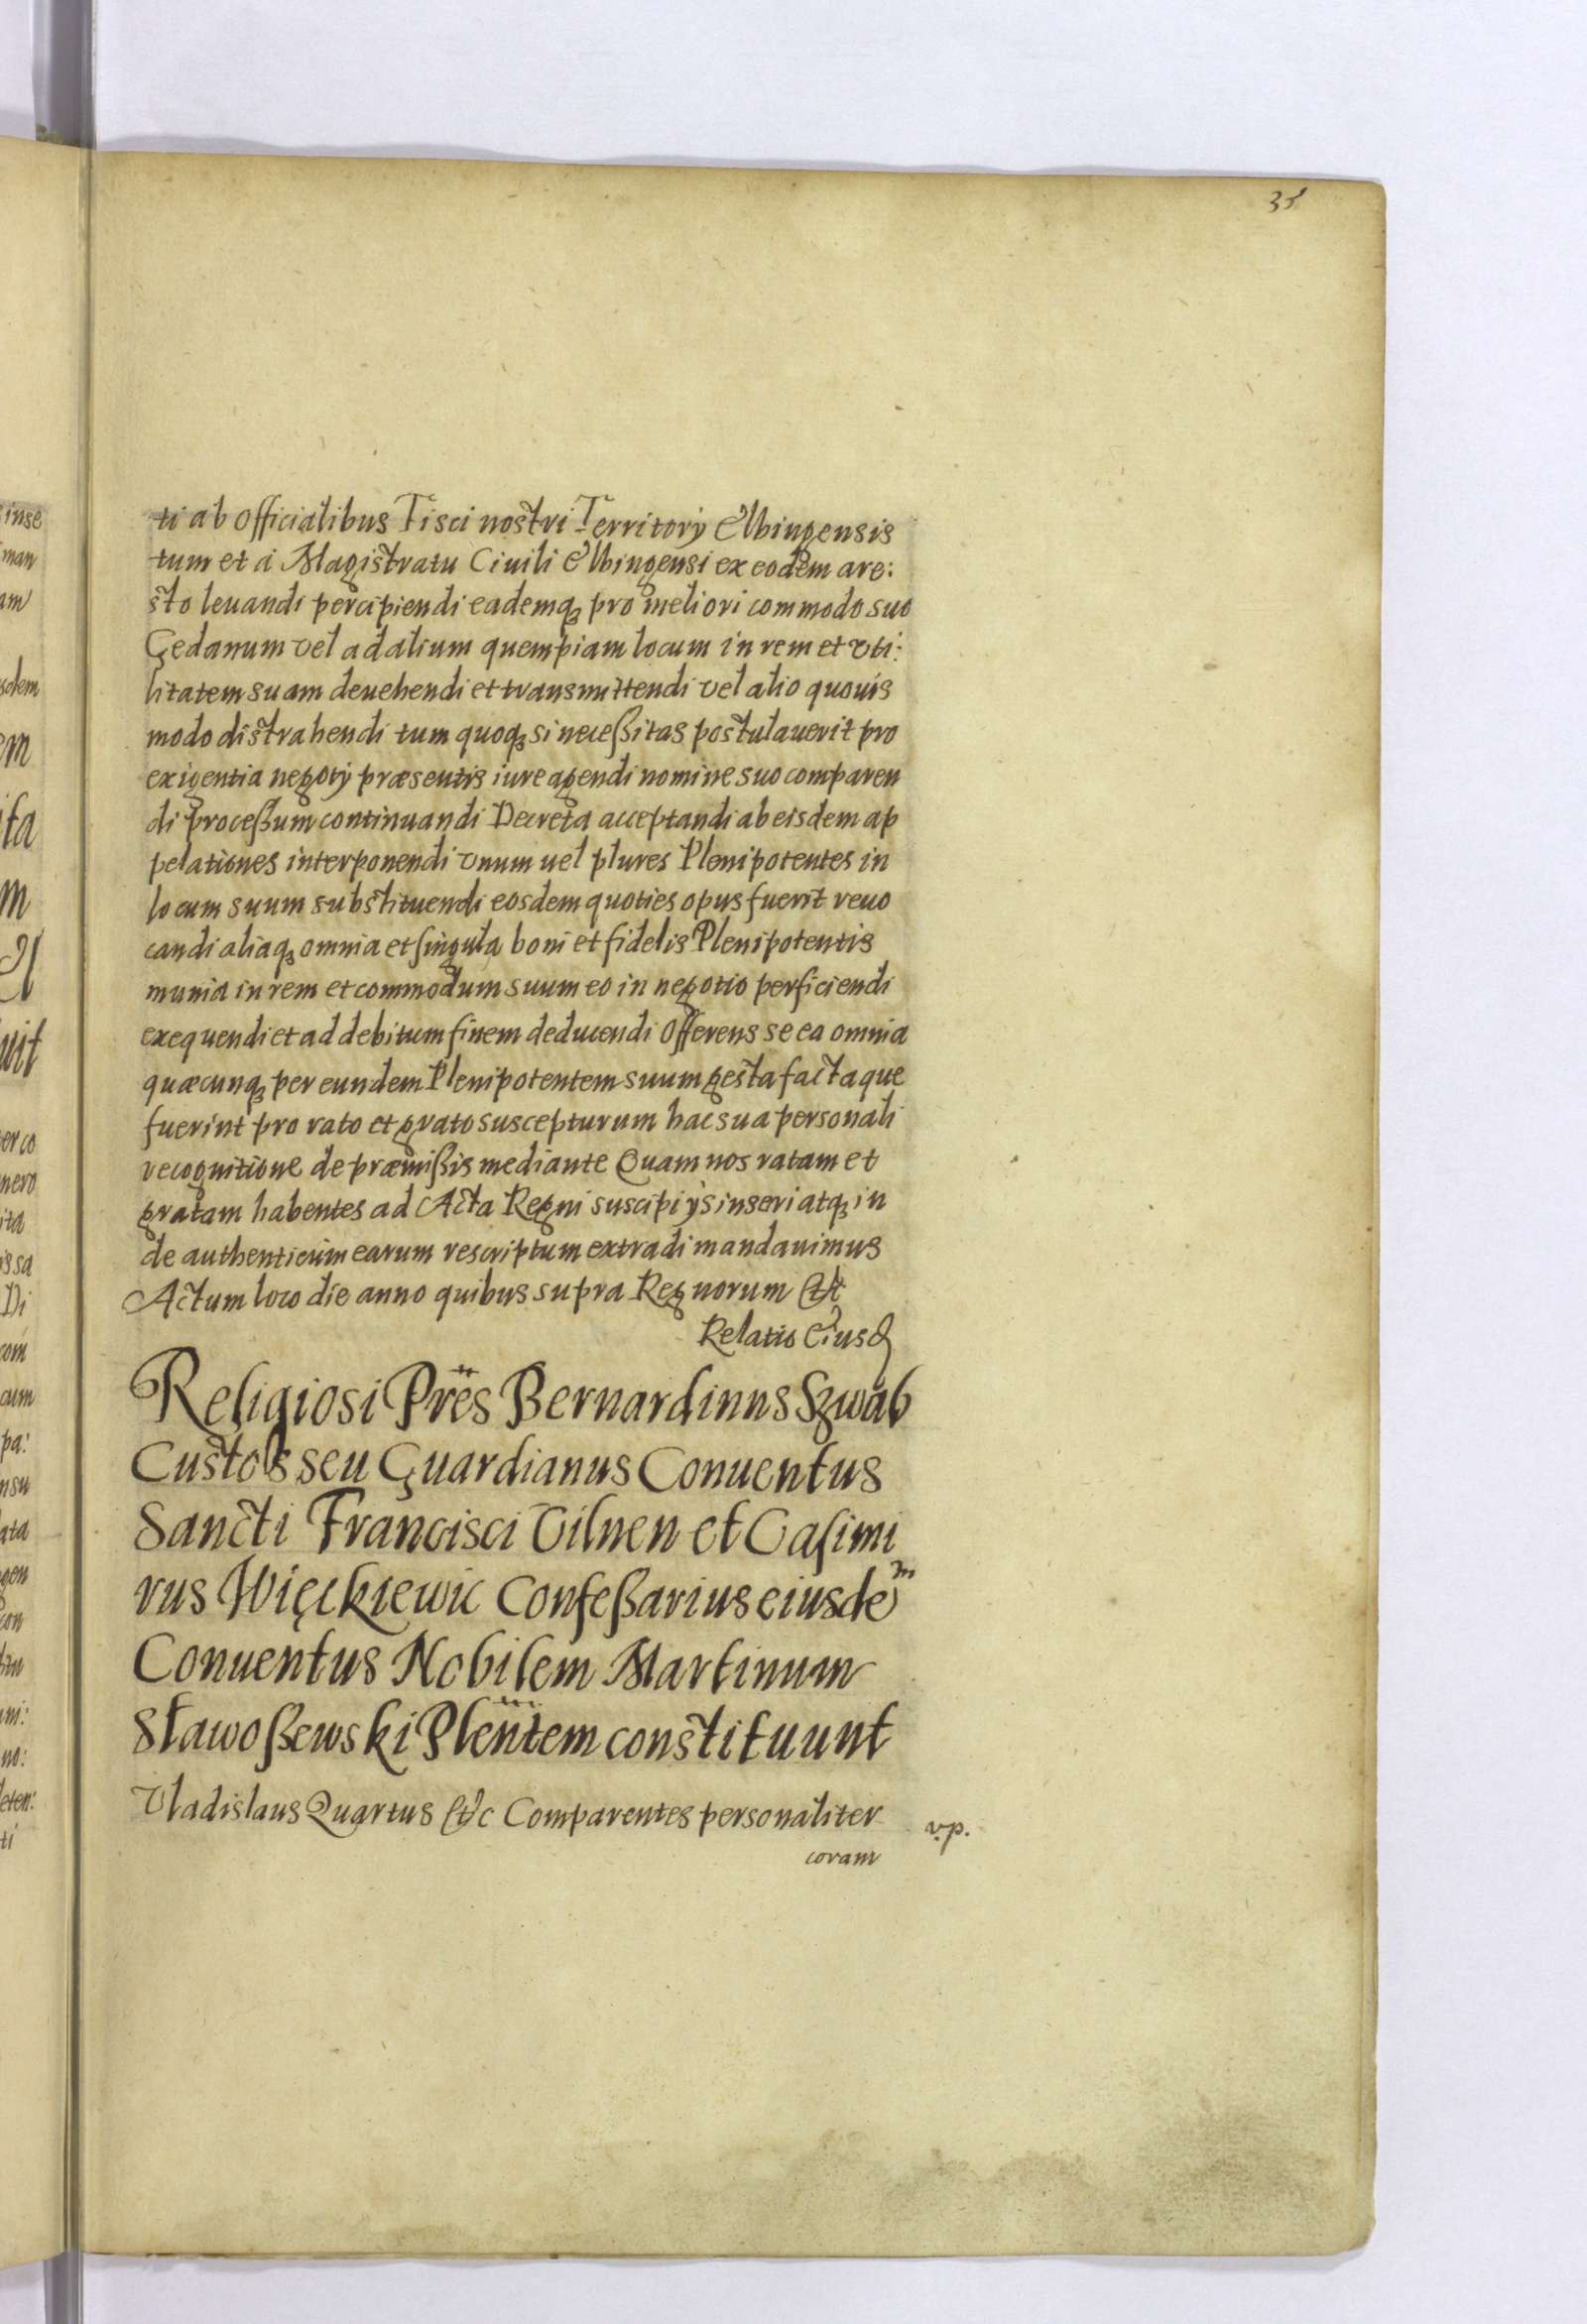 35
ti ab officialibus Fisci nostri Territorÿ Elbingensis
tum et á Magistratu Ciuili Elbingensi ex eodem are:
sto leuandi percipiendi eademqꝫ pro meliori commodo suo
Gedanum vel ad alium quempiam locum in rem et vti:
litatem suam deuehendi et transmittendi vel alio quouis
modo distrahendi tum quoqꝫ si neceßitas postulauerit pro
exigentia negotÿ præsentis iure agendi nomine suo comparen
di proceßum continuandi Decreta acceptandi ab eisdem ap
pelationes interponendi vnum uel plures Plenipotentes in
locum suum substituendi eosdem quoties opus fuerit reuo
candi aliaqꝫ omnia et singula boni et fidelis Plenipotentis
munia in rem et commodum suum eo in negotio perficiendi
exequendi et ad debitum finem deducendi Offerens se ea omnia
quæcunqꝫ per eundem Plenipotentem suum gesta factaque
fuerint pro rato et grato suscepturum hac sua personali
recognitione de præmißis mediante Quam nos ratam et
gratam habentes ad Acta Regni suscipi ÿs inseri atqꝫ in
de authenticum earum rescriptum extradi mandauimus
Actum loco die anno quibus supra Regnorum Etc
Relatio Eiusd
Religiosi Pr̃es Bernardinus Szwab
Custos seu Guardianus Conuentus
Sancti Francisci Vilnen et Casimi
rus Więckiewic Confeßarius eiusdeᵐ
Conuentus Nobilem Martinum
Sławoßewski Plen̄tem constituunt
Vladislaus Quartus Etc Comparentes personaliter v.p.
coram